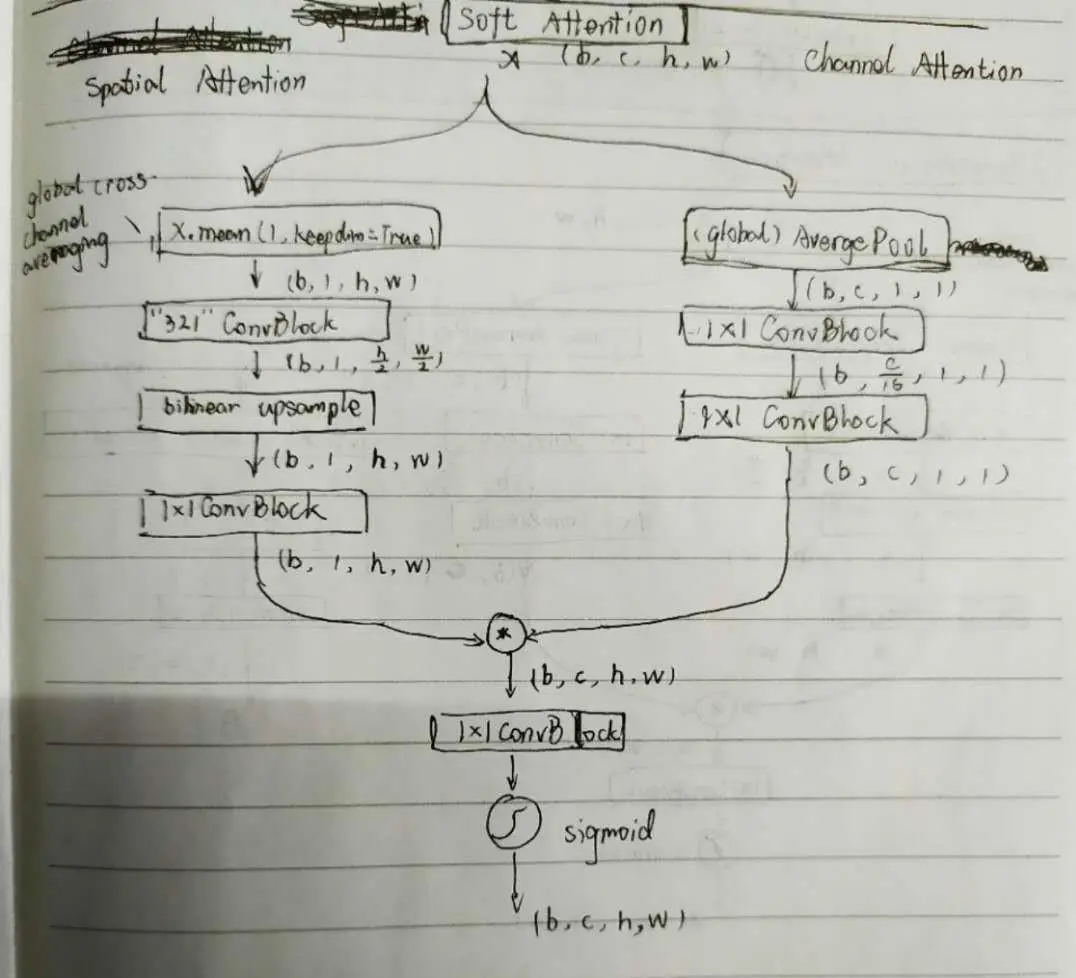 Soft Attention
x (b, c, h, w)
Spatial Attention
Channel Attention
global cross-
channel
averaging
x.mean(1, keepdim=True)
(b, 1, h, w)
"321" ConvBlock
(b, 1, h/2, w/2)
bilinear upsample
(b, 1, h, w)
1x1 ConvBlock
(b, 1, h, w)
(global) AvergePool
(b, c, 1, 1)
1x1 ConvBlock
(b, c/16, 1, 1)
1x1 ConvBlock
(b, c, 1, 1)
*
(b, c, h, w)
1x1 ConvBlock
sigmoid
(b, c, h, w)